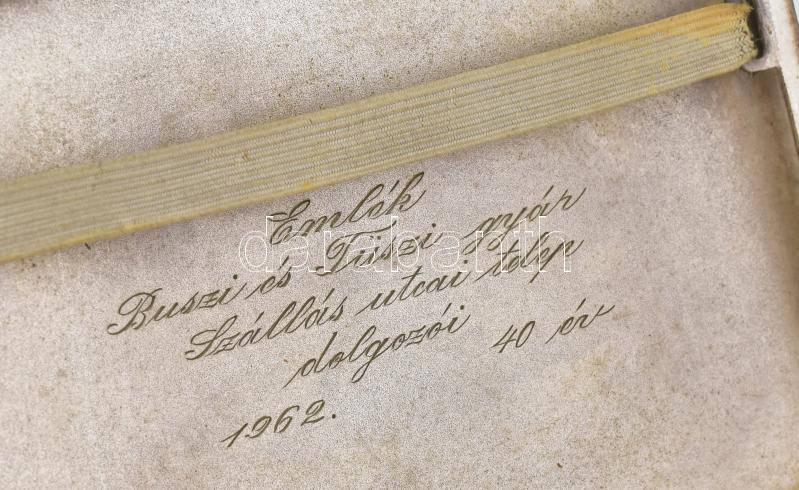 Emlék
Buszi és Tüszi gyár
Szállás utcai telep
dolgozói 40 év
1962.
darabanth